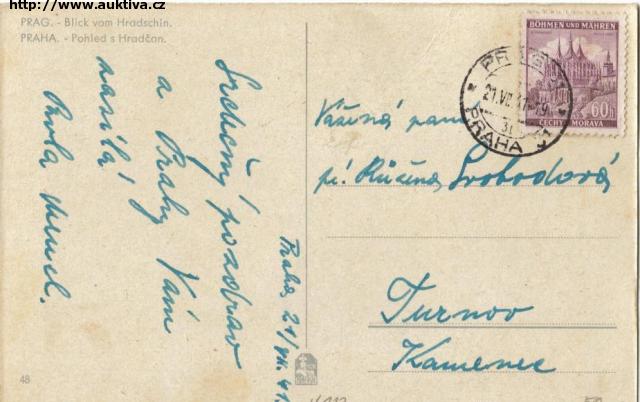 http://www.auktiva.cz
PRAG. - Blick vom Hradschin.
PRAHA. - Pohled s Hradčan.
Srdečný pozdrav
z Prahy Vám
zasílá
Praha 21/VII. 41.
BÖHMEN UND MÄHREN
60h
ČECHY-MORAVA
PRAG 31
21.VII.41
PRAHA 31
Vážená paní
pí. Růžena Svobodová
Turnov
Kamenec
48